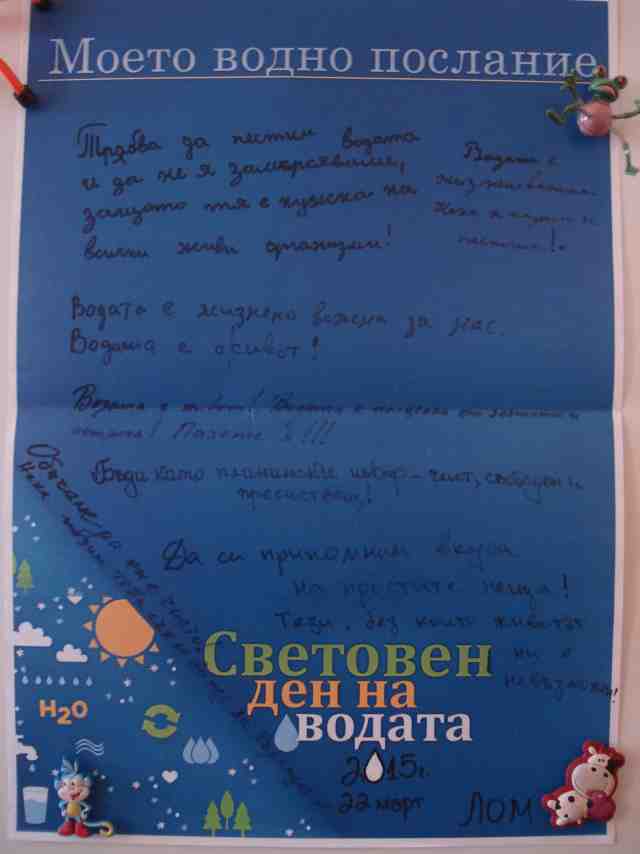 Моето водно послание
Трябва да пестим водата
и да не я замърсяваме,
защото тя е нужна на
всички живи организми!
Водата е
жизненоважна.
Нека я пазим и
пестим!
Водата е жизнено важна за нас.
Водата е живот!
Водата е живот!
Пазете я!!!
Бъди като планински извор – чист, свободен и
пречистващ!
Да си припомним вкуса
на простите неща!
Тези, без които животът
ни е
невъзможен!
Обичаме
Нека пазим
Световен
ден на
водата
H2O
2015г.
22 март
ЛОМ